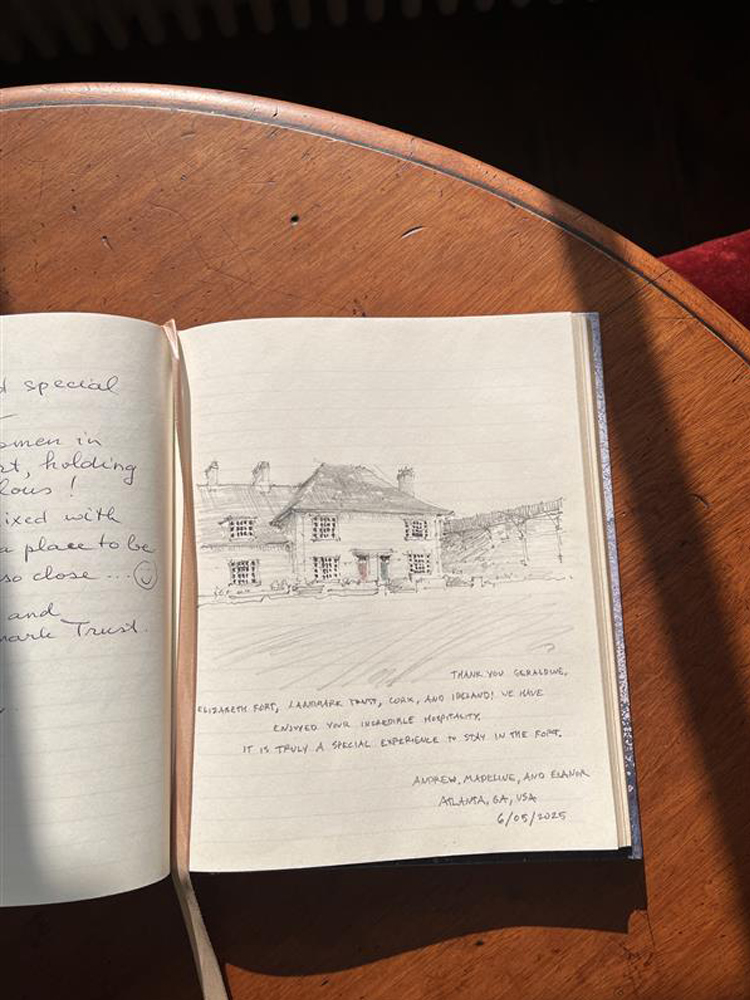 special
in
holding
!
with
a place to be
so close ...
and
Trust.
THANK YOU GERALDINE,
ELIZABETH FORT, LANDMARK TRUST, CORK, AND IRELAND! WE HAVE
ENJOYED YOUR INCREDIBLE HOSPITALITY.
IT IS TRULY A SPECIAL EXPERIENCE to STAY IN THE FORT.
ANDREW, MADELINE, AND ELANOR
ATLANTA, GA, USA
6/05/2025